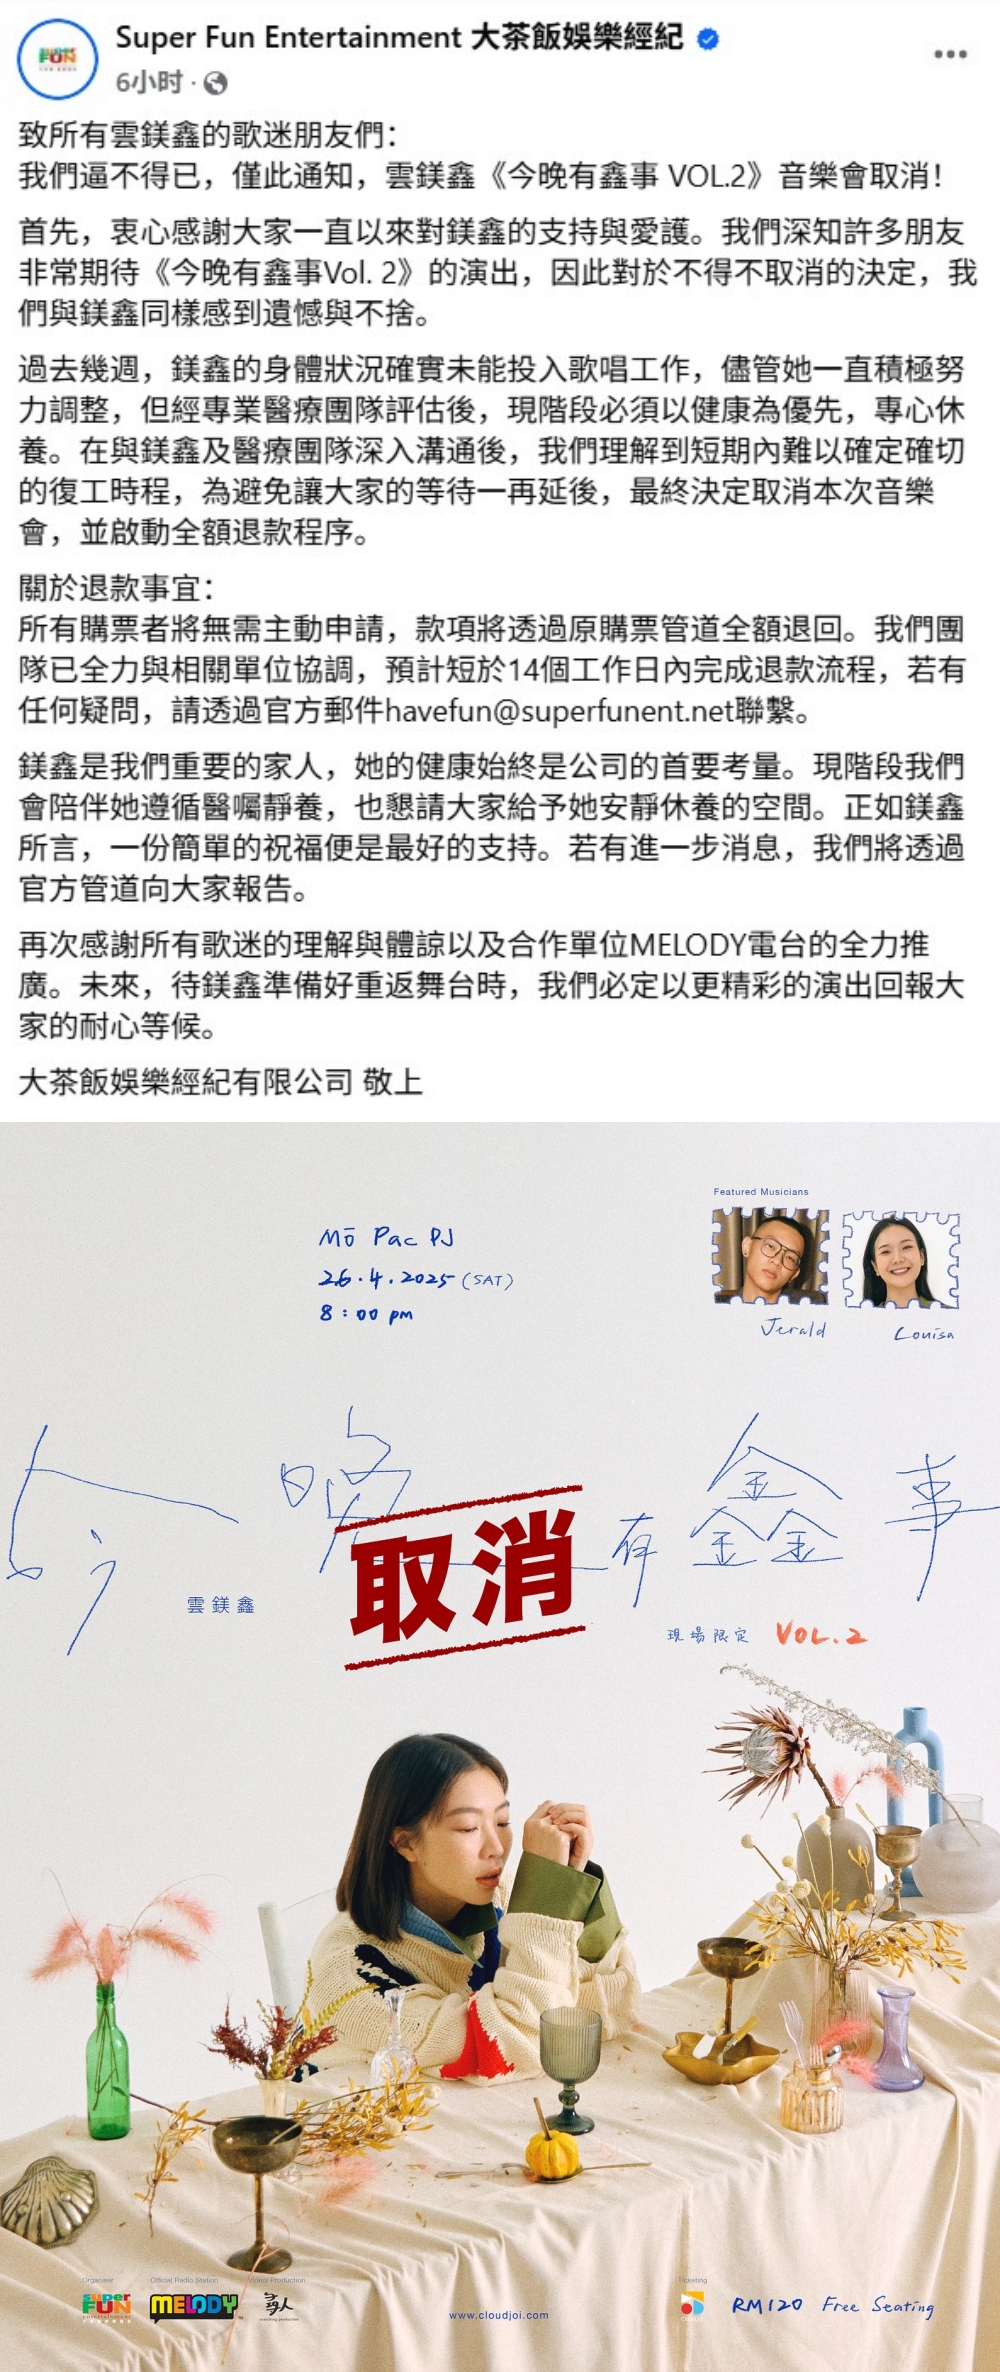 Super Fun Entertainment 大茶飯娛樂經紀
6小时
致所有雲鎂鑫的歌迷朋友們：
我們逼不得已，僅此通知，雲鎂鑫《今晚有鑫事 VOL.2》音樂會取消！
首先，衷心感謝大家一直以來對鎂鑫的支持與愛護。我們深知許多朋友
非常期待《今晚有鑫事Vol. 2》的演出，因此對於不得不取消的決定，我
們與鎂鑫同樣感到遺憾與不捨。
過去幾週，鎂鑫的身體狀況確實未能投入歌唱工作，儘管她一直積極努
力調整，但經專業醫療團隊評估後，現階段必須以健康為優先，專心休
養。在與鎂鑫及醫療團隊深入溝通後，我們理解到短期內難以確定確切
的復工時程，為避免讓大家的等待一再延後，最終決定取消本次音樂
會，並啟動全額退款程序。
關於退款事宜：
所有購票者將無需主動申請，款項將透過原購票管道全額退回。我們團
隊已全力與相關單位協調，預計短於14個工作日內完成退款流程，若有
任何疑問，請透過官方郵件havefun@superfunent.net聯繫。
鎂鑫是我們重要的家人，她的健康始終是公司的首要考量。現階段我們
會陪伴她遵循醫囑靜養，也懇請大家給予她安靜休養的空間。正如鎂鑫
所言，一份簡單的祝福便是最好的支持。若有進一步消息，我們將透過
官方管道向大家報告。
再次感謝所有歌迷的理解與體諒以及合作單位MELODY電台的全力推
廣。未來，待鎂鑫準備好重返舞台時，我們必定以更精彩的演出回報大
家的耐心等候。
大茶飯娛樂經紀有限公司 敬上
Featured Musicians
Mō Pac PJ
26.4.2025 (SAT)
8:00 pm
Jerald
Louisa
今晚有鑫事
取消
雲鎂鑫
現場限定 VOL.2
Organiser
Official Radio Station
Video Production
Ticketing
super FUN
MELODY
尋人
www.cloudjoi.com
RM120 Free Seating